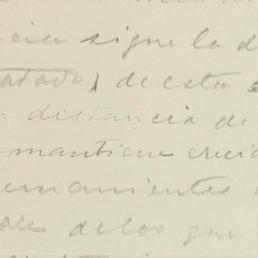 sigue la d
tratado, de esta
distancia de
mantiene creci
amientos
ale de los que